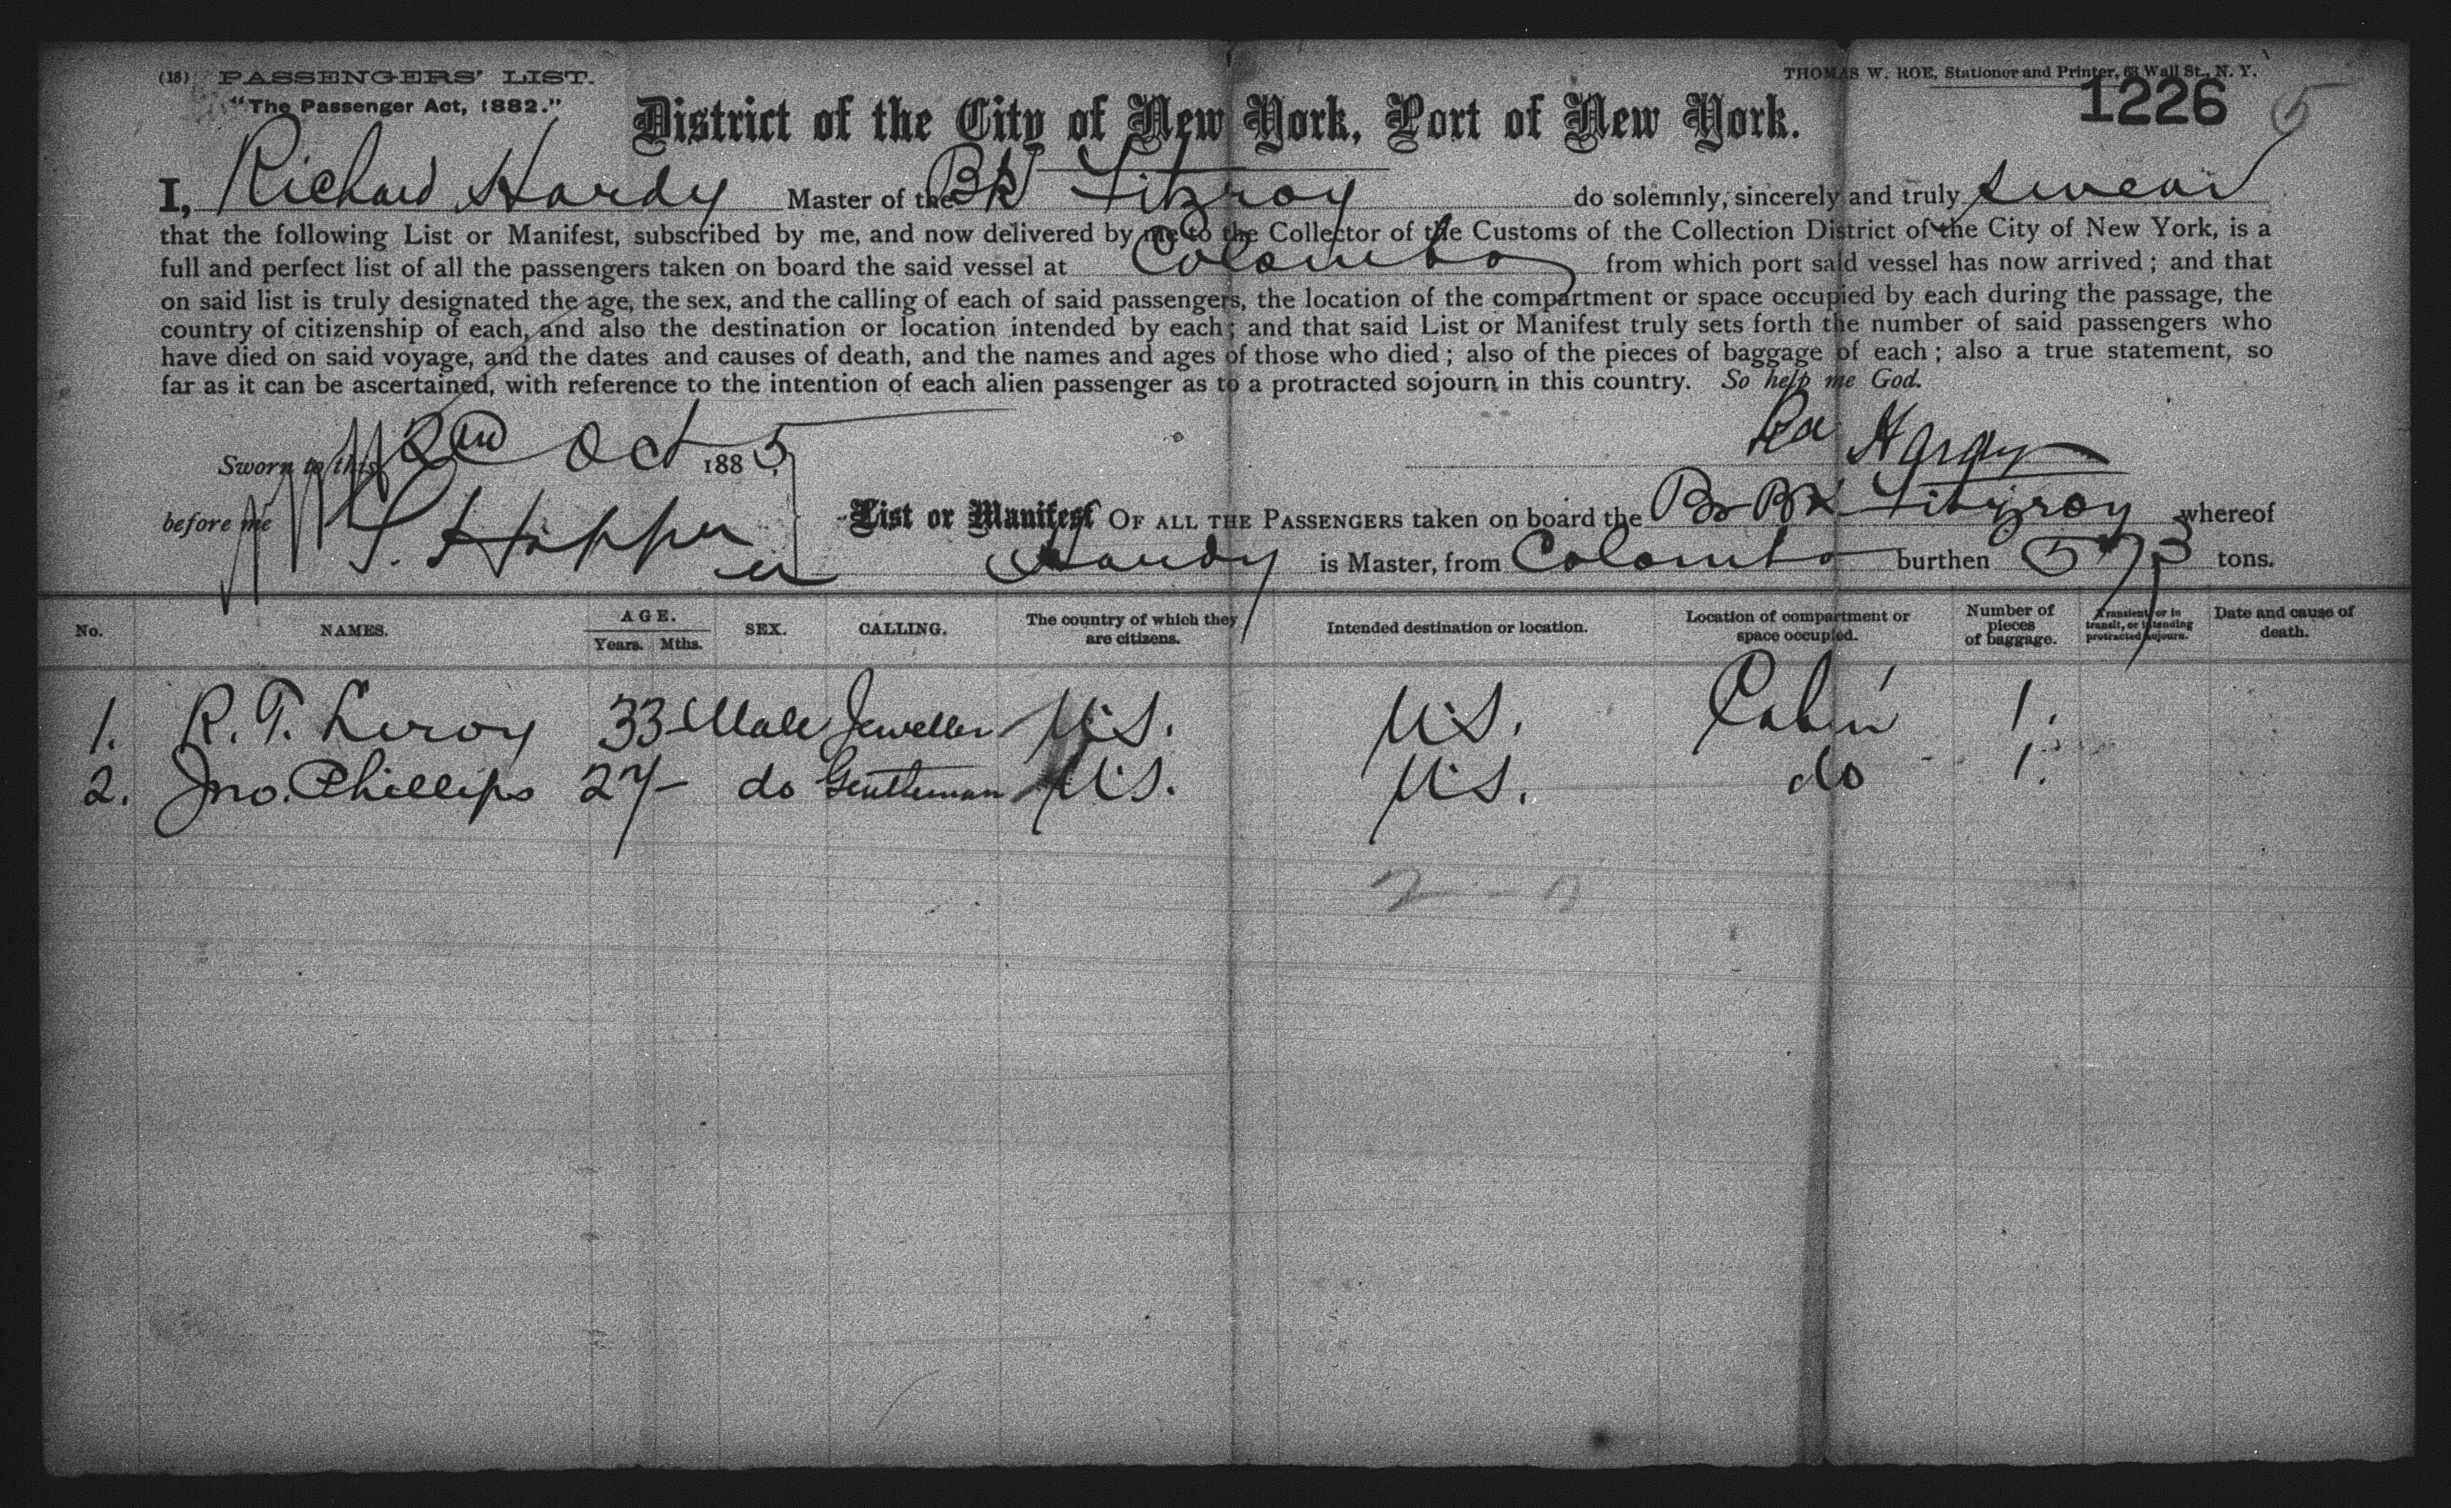 (18) PASSENGERS' LIST.
THOMAS W. ROE, Stationer and Printer, 63 Wall St., N. Y.
"The Passenger Act, 1882."
1226
5
District of the City of New York, Port of New York.
I, Richard Hardy Master of the Bk Fitzroy do solemnly, sincerely and truly swear
that the following List or Manifest, subscribed by me, and now delivered by me to the Collector of the Customs of the Collection District of the City of New York, is a
full and perfect list of all the passengers taken on board the said vessel at Colombo from which port said vessel has now arrived ; and that
on said list is truly designated the age, the sex, and the calling of each of said passengers, the location of the compartment or space occupied by each during the passage, the
country of citizenship of each, and also the destination or location intended by each ; and that said List or Manifest truly sets forth the number of said passengers who
have died on said voyage, and the dates and causes of death, and the names and ages of those who died ; also of the pieces of baggage of each ; also a true statement, so
far as it can be ascertained, with reference to the intention of each alien passenger as to a protracted sojourn in this country. So help me God.
Sworn to this 2nd Oct 1885
Hardy
before me
List or Manifest OF ALL THE PASSENGERS taken on board the Br Bk Fitzroy whereof
Hardy is Master, from Colombo burthen 573 tons.
No. NAMES. AGE. Years. Mths. SEX. CALLING. The country of which they are citizens. Intended destination or location. Location of compartment or space occupied. Number of pieces of baggage. Transient, or in transit, or intending protracted sojourn. Date and cause of death.
1. R. T. Leroy 33 - Male Jeweller U.S. U.S. Cabin 1.
2. Jno. Phillips 27 - do Gentleman U.S. U.S. do 1.
2 - 0